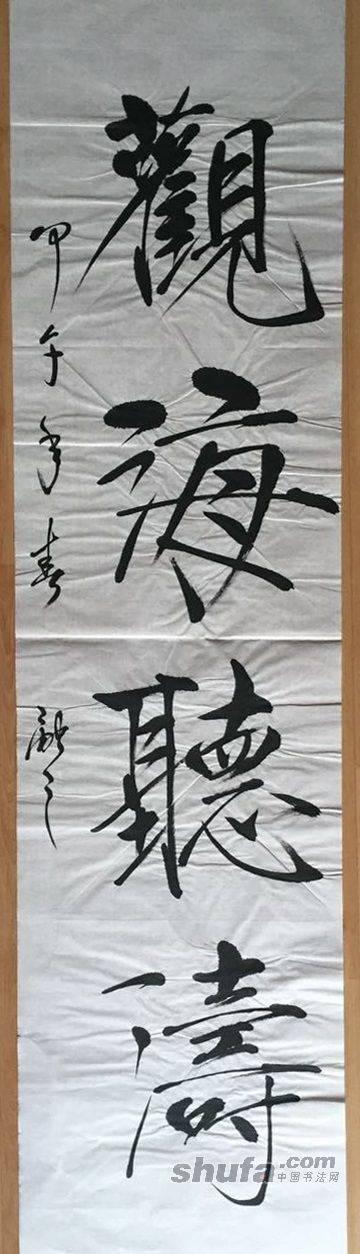 觀海聽濤
甲午年春
shufa.com
中国书法网